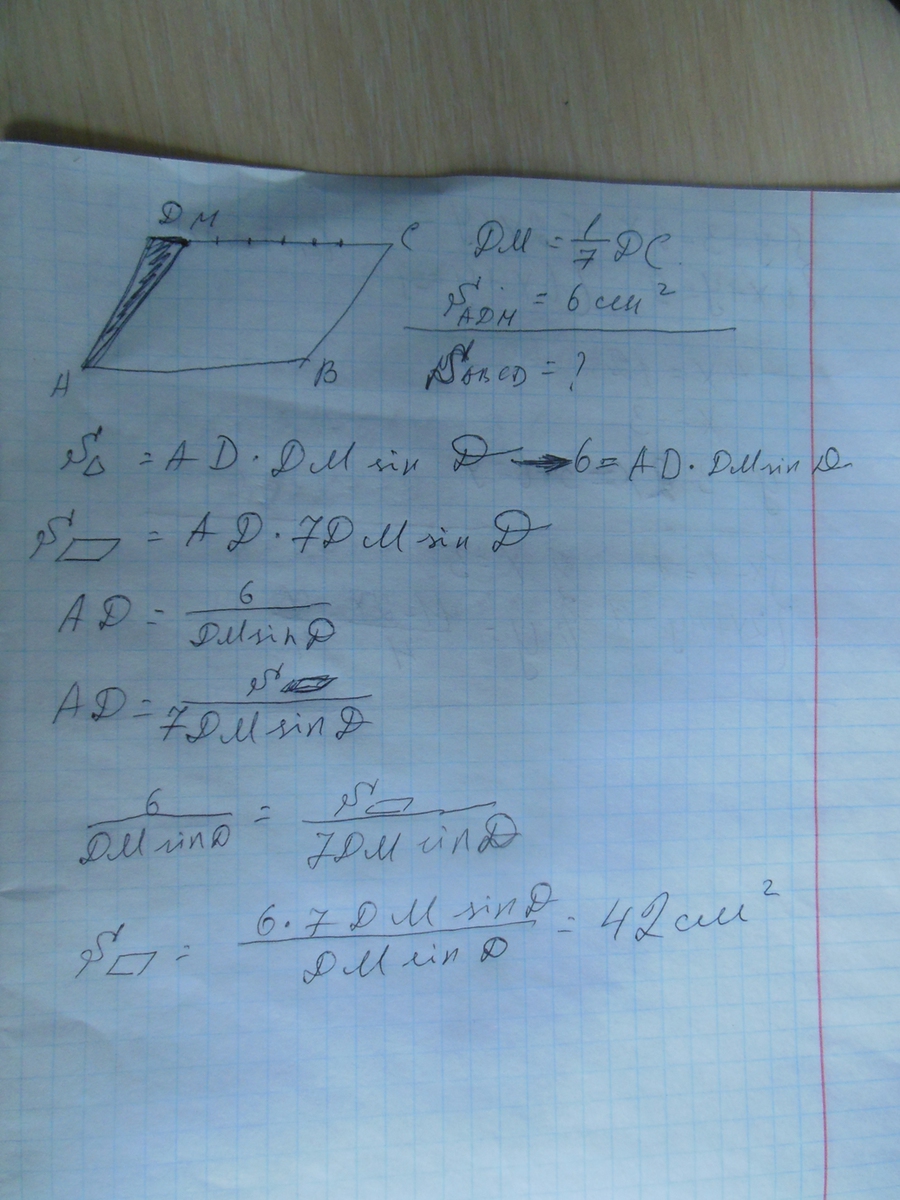 D M C
A B
DM = 1/7 DC
S_ADM = 6 см²
S_ABCD = ?
S△ = AD · DM sin D → 6 = AD · DM sin D
S▱ = AD · 7DM sin D
AD = 6 / DM sin D
AD = S▱ / 7DM sin D
6 / DM sin D = S▱ / 7DM sin D
S▱ = 6·7 DM sin D / DM sin D = 42 см²